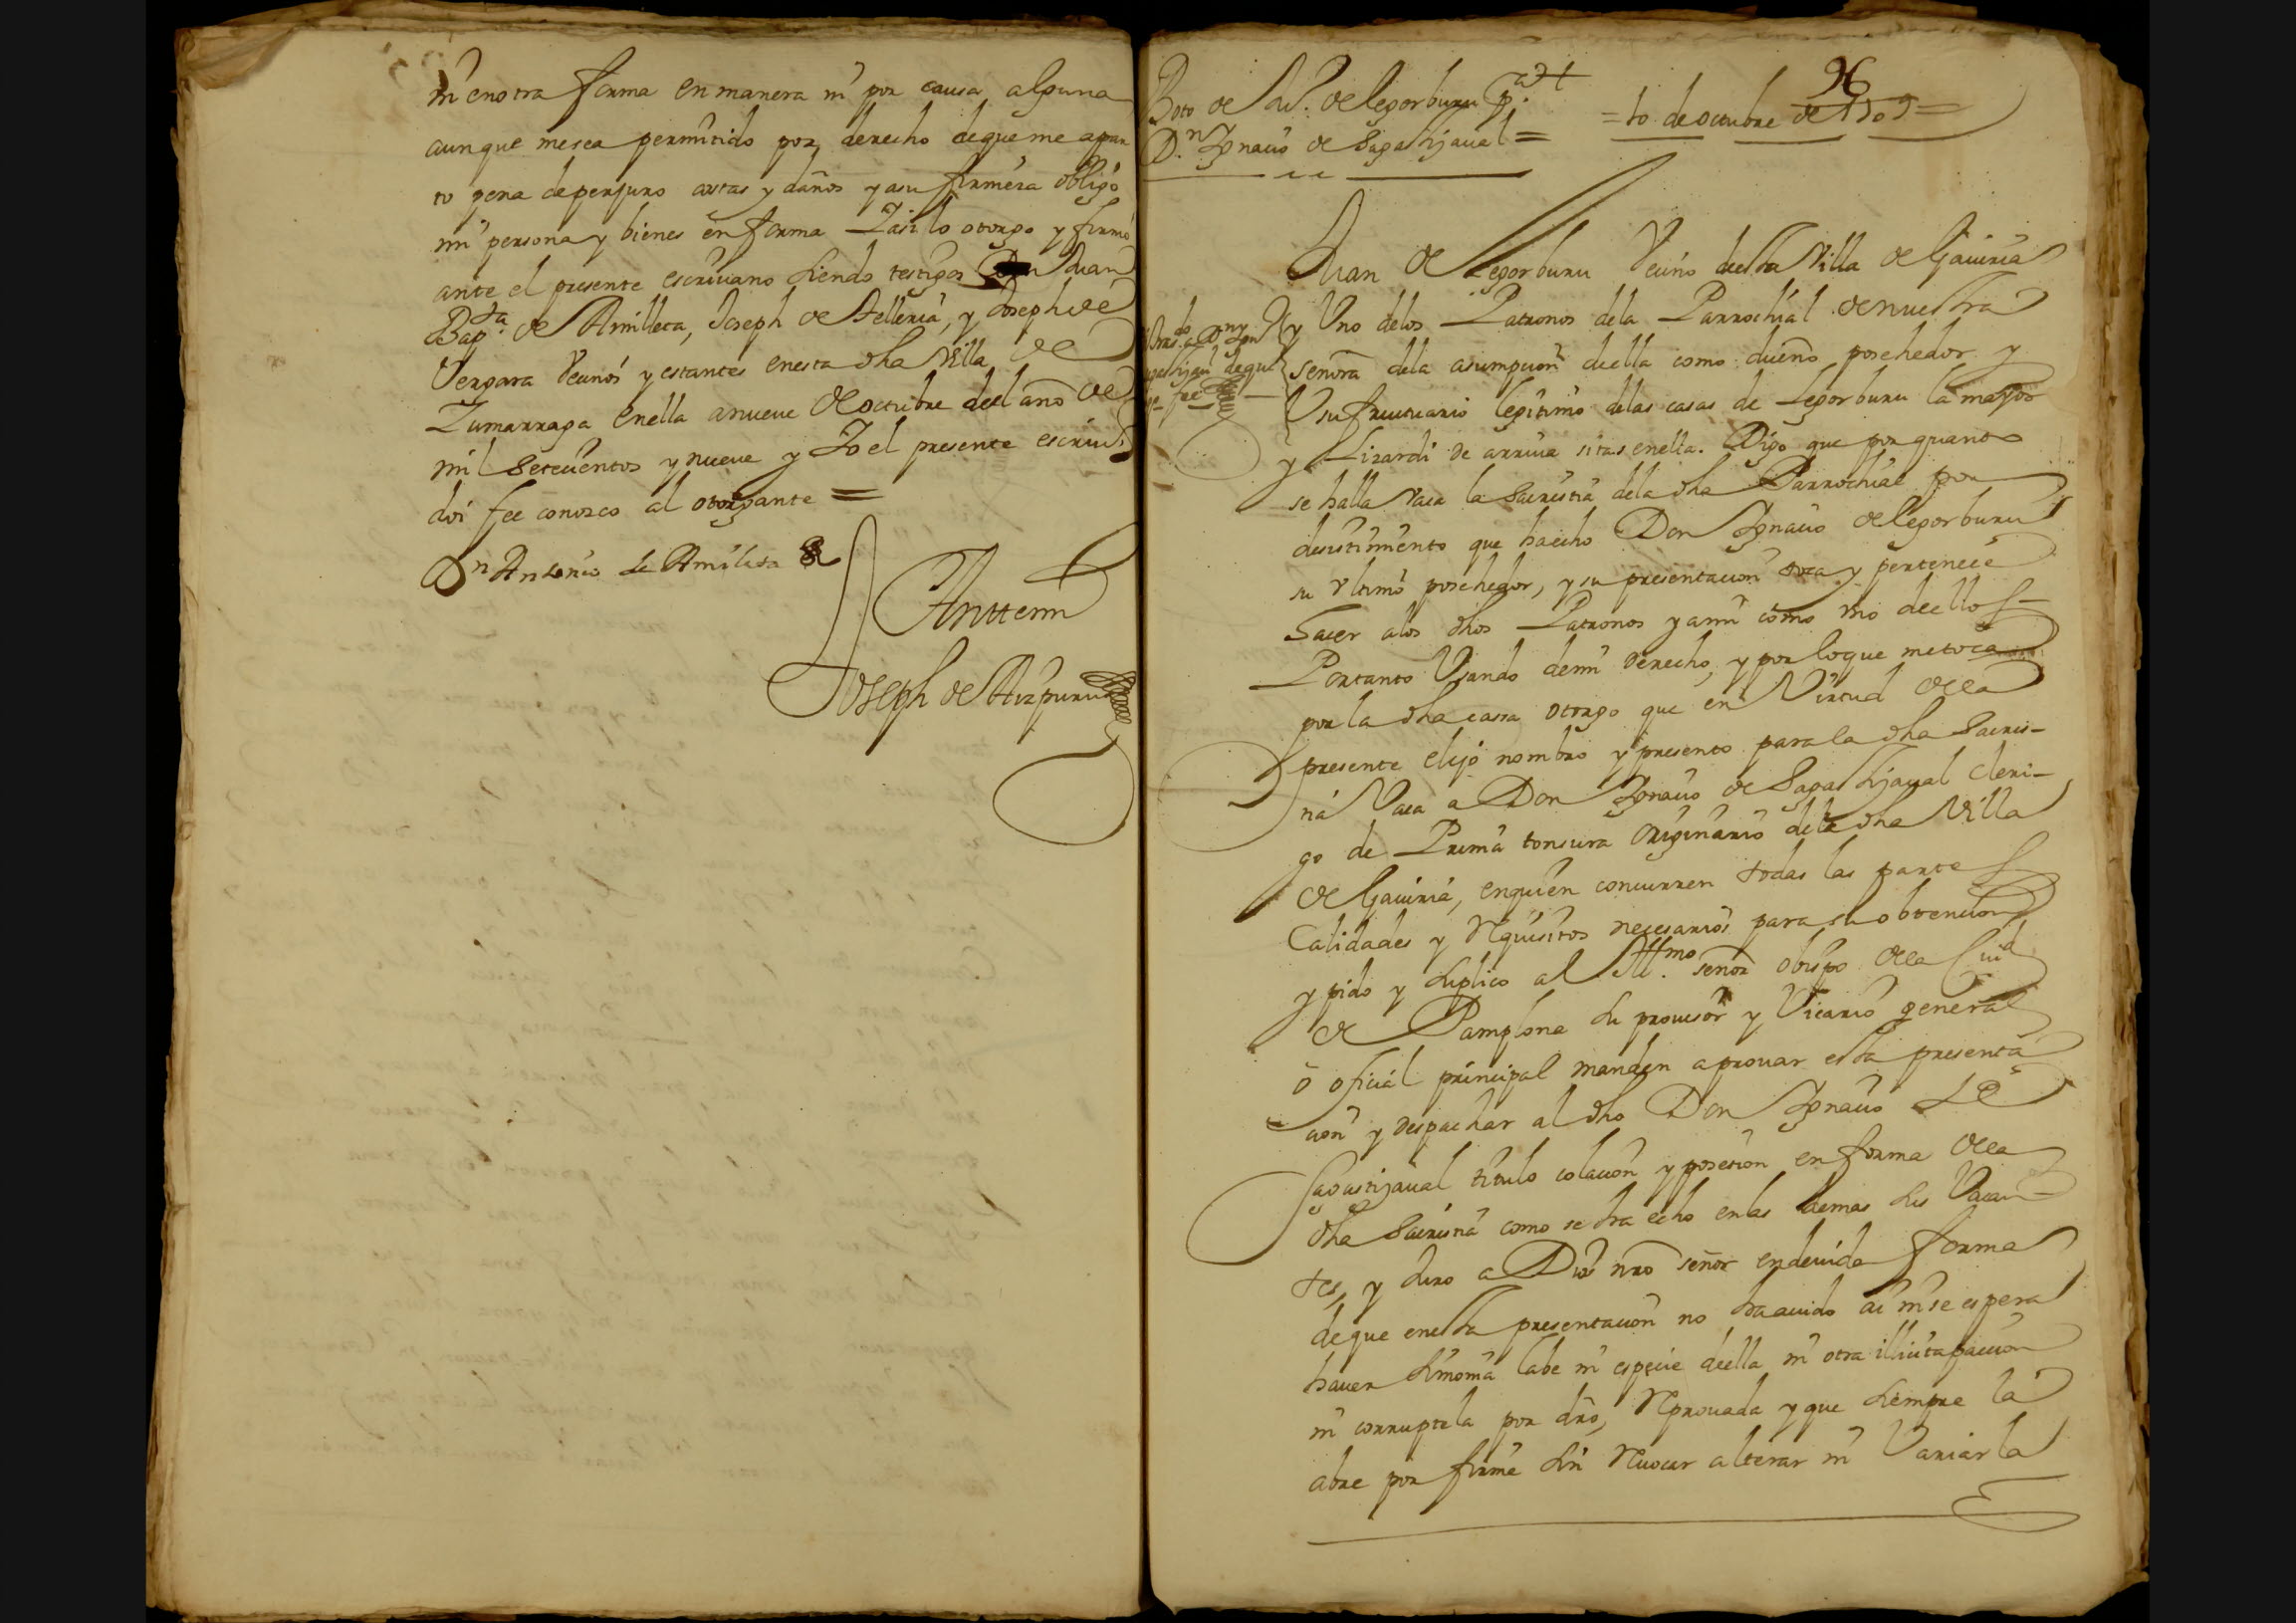 ni en otra forma en manera ni por causa alguna
aunque me sea permitido por derecho de que me apar
to pena de perjuro costas y daños y a su firmeza obligo
mi persona y bienes en forma Y asi lo otorgo y firmo
ante el presente escriuano siendo testigos Juan
Bap.ta de Amilleta, Joseph de Telleria, y Joseph de
Vergara Vecinos y estantes en esta dha Villa de
Zumarraga en ella a nueue de octubre del año de
mil setecientos y nueue y Yo el presente escriu.o
doi fee conozco al otorgante =
Dn Antonio de Amileta
Ante mi
Joseph de Aizpuru
96
Boto de Ju.o de legorburu p.a
D.n Ignacio de Sagastijaual =
= 10 de octubre de 1709 =
Juan de Legorburu Vecino desta Villa de Gauiria
y Uno delos Patronos dela Parrochial de nuestra
señora dela asumpcion della como dueño posehedor y
Usufructuario legitimo delas casas de Legorburu la mayor
y Lizardi de arriua sitas en ella. Digo que por quanto
se halla Vaca la Sacristia dela dha Parrochial por
desistimiento que ha echo Don Ignacio de legorburu
su Vltimo posehedor, y su presentacion toca y pertenece
hacer alos dhos Patronos y a mi como vno dellos
Portanto Usando de mi derecho, y por lo que me toca
por la dha cassa otorgo que en Virtud dela
presente elijo nombro y presento para la dha Sacris-
tia Vaca a Don Ignacio de Sagastijaual Cleri-
go de Prima tonsura Originario dela dha Villa
de Gauiria, en quien concurren todas las partes
Calidades y Requisitos necesarios para su obtencion
y pido y suplico al Ill.mo señor obispo dela Ciud
de Pamplona su prouisor y Vicario general
o oficial principal manden aprouar esta presenta
cion y despachar al dho Don Ignacio de
Sagastijaual titulo colacion y posesion en forma dela
dha Sacristia como se ha echo en las demas sus Vacan-
tes, y Juro a Dios nro señor en deuida forma
de que en esta presentacion no ha auido ai ni se espera
hauer simonia labe ni especie della ni otra illicita paccion
ni corruptela por dro, Reprouada y que siempre la
abre por firme sin Reuocar alterar ni Variar la